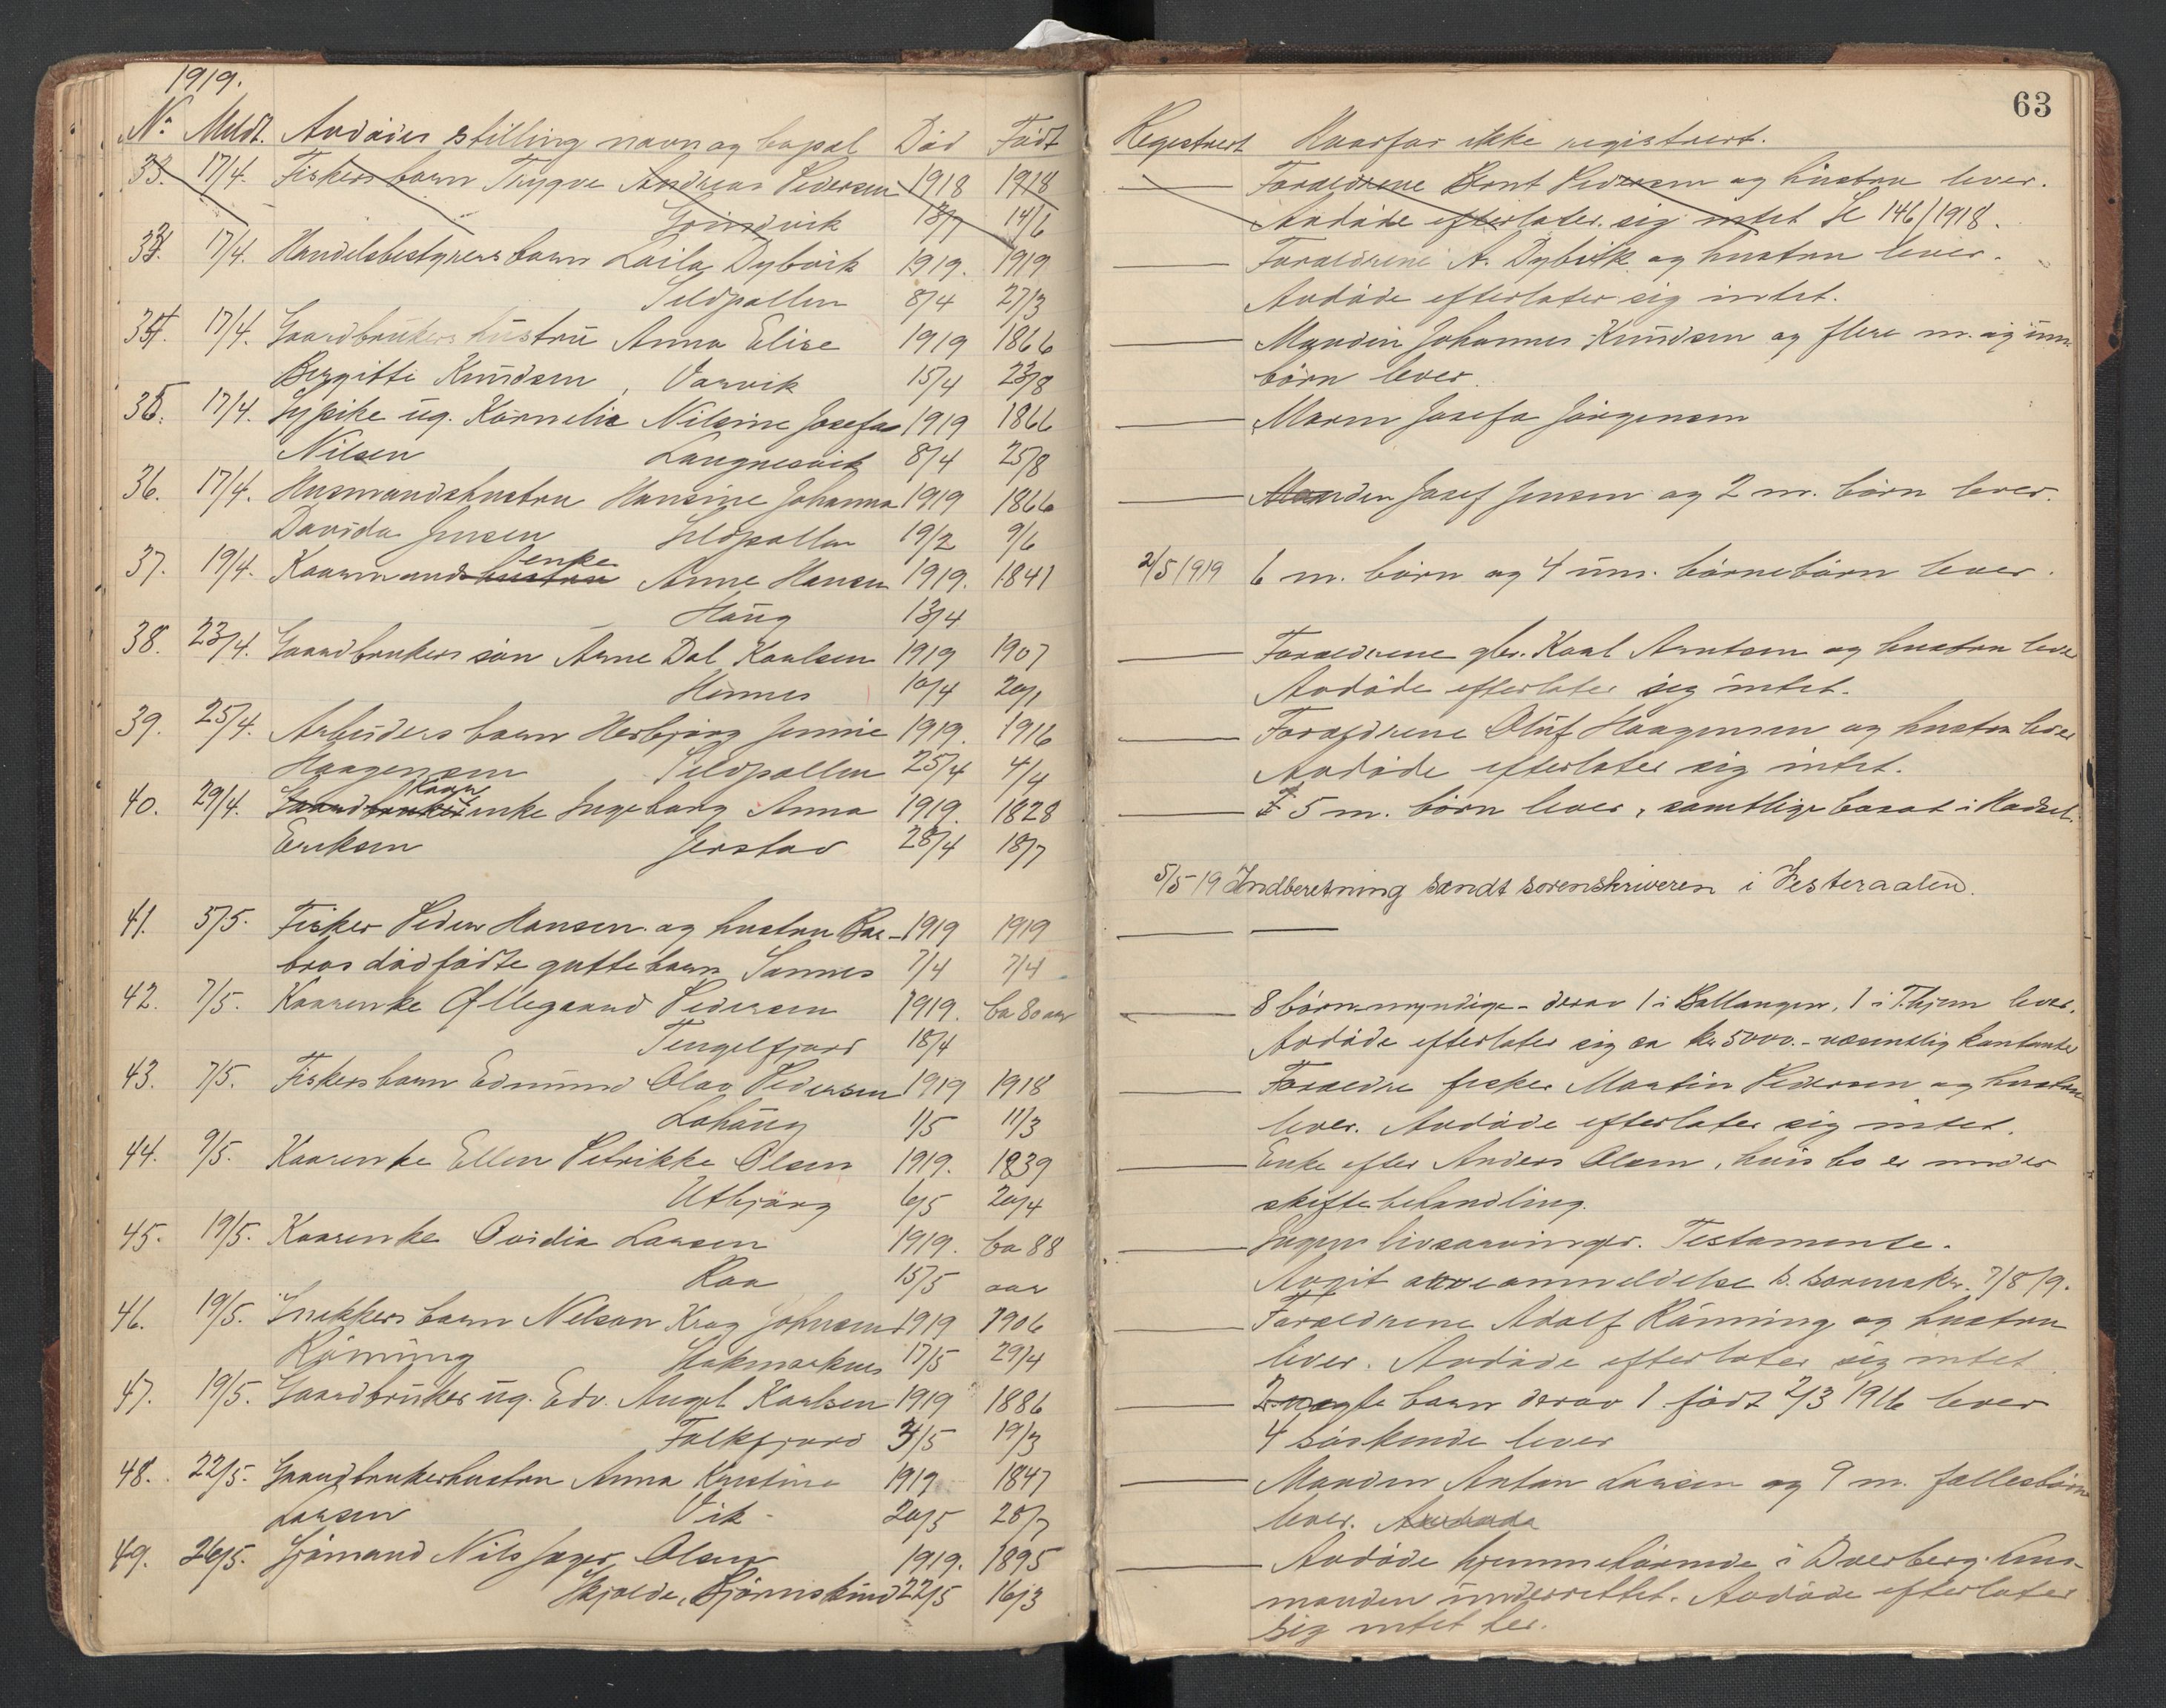 1919.
No Meldt. Avdödes stilling navn og bopæl Död Född
33. 17/4. Fiskers barn Trygve Andreas Pedersen 1918 1918
Grindvik 18/7 14/6
33. 17/4. Handelsbestyrers barn Laila Dybvik 1919. 1919
Sildpollen 8/4 27/3
34. 17/4. Gaardbrukers hustru Anna Elise 1919 1866
Bergitte Knudsen, Varvik 15/4 23/8
35. 17/4. Sypike ug. Kornelie Nilsine Josefa 1919 1866
Nilsen Langnesvik 8/4 25/8
36. 17/4. Husmandshustru Hansine Johanna 1919 1866
Davida Jensen Sildpollen 19/2 9/6
enke
37. 19/4. Kaarmandshustru Anne Hansen 1919. 1841
Haug 13/4
38. 23/4. Gaardbrukers sön Arne Dal Karlsen 1919 1907
Hennes 10/4 20/1
39. 25/4. Arbeiders barn Herbjörg Jennie 1919. 1916
Haagensen Sildpollen 25/4 4/4
Kaar
40. 29/4. Gaardbrukerenke Ingeborg Anna 1919. 1828
Eriksen Jerstad 28/4 18/7
41. 5/5. Fisker Peder Hansen og hustru Bar- 1919 1919
bros dödfödte guttebarn Sannes 7/4 7/4
42. 7/5. Kaarenke Ollegaard Pedersen 1919. ca 80 aar
Tengelfjord 18/4
43. 7/5. Fiskers barn Edmund Olav Pedersen 1919 1918
Lahaug 1/5 11/3
44. 9/5. Kaarenke Ellen Petrikke Olsen 1919. 1839
Utbjörg 6/5 20/4
45. 19/5. Kaarenke Ovidia Larsen 1919. ca 88
Raa 15/5 aar
46. 19/5. Snekkers barn Nelson Krog Johnsen 1919 1906
Rönning Stokmarknes 17/5 29/4
47. 19/5. Gaardbruker ug. Edv. Angel Karlsen 1919 1886
Falkfjord 3/5 19/3
48. 22/5. Gaardbrukerhustru Anna Kristine 1919 1847
Larsen Vik - 20/5 20/7
49. 26/5. Sjömand Nils Olsen 1919. 1895
Skjolde, Björnskind 22/5 16/3
63
Registrert Hvorfor ikke registrert.
Forældrene Bernt Pedersen og hustru lever.
Avdöde efterlater sig intet Se 146/1918.
Forældrene A. Dybvik og hustru lever.
Avdöde efterlater sig intet.
Manden Johannes Knudsen og flere m. og um.
börn lever.
Moren Josefa Jörgensen
Manden Josef Jensen og 2 m. börn lever.
2/5 1919 6 m. börn og 4 um. börnebörn lever.
Forældrene gbr. Karl Arntsen og hustru lever
Avdöde efterlater sig intet.
Forældrene Oluf Haagensen og hustru lever
Avdöde efterlater sig intet.
5 m. börn lever, samtlige bosat i Hadsel.
5/5 19 Indberetning sendt sorenskriveren i Vesteraalen.
8 börn myndige - derav 1 i Ballangen, 1 i Thjem lever.
Avdöde efterlater sig ca kr 5000.- væsentlig kontanter
Forældre fisker Martin Pedersen og hustru
lever. Avdöde efterlater sig intet.
Enke efter Anders Olsen, hvis bo er under
skiftebehandling.
Ingen livsarvinger. Testamente.
Avgit anmeldelse t. sorenskr. 7/8 19.
Forældrene Adolf Rönning og hustru
lever. Avdöde efterlater sig intet
2 uegte barn derav 1 född 2/3 1916 lever
4 söskende lever
Manden Anton Larsen og 9 m. fællesbörn
lever. Avdöde
Avdöde hjemmehörende i Dverberg. Lens-
manden underrettet. Avdöde efterlater
sig intet her.